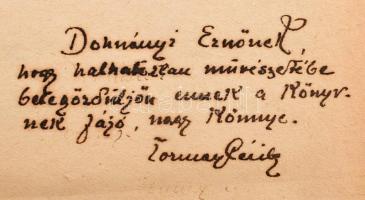 Dohnányi Ernőnek,
hogy halhatatlan művészetébe
belegördüljön ennek a Könyv-
nek fájó, nagy Könnye.
Tormay Cécile